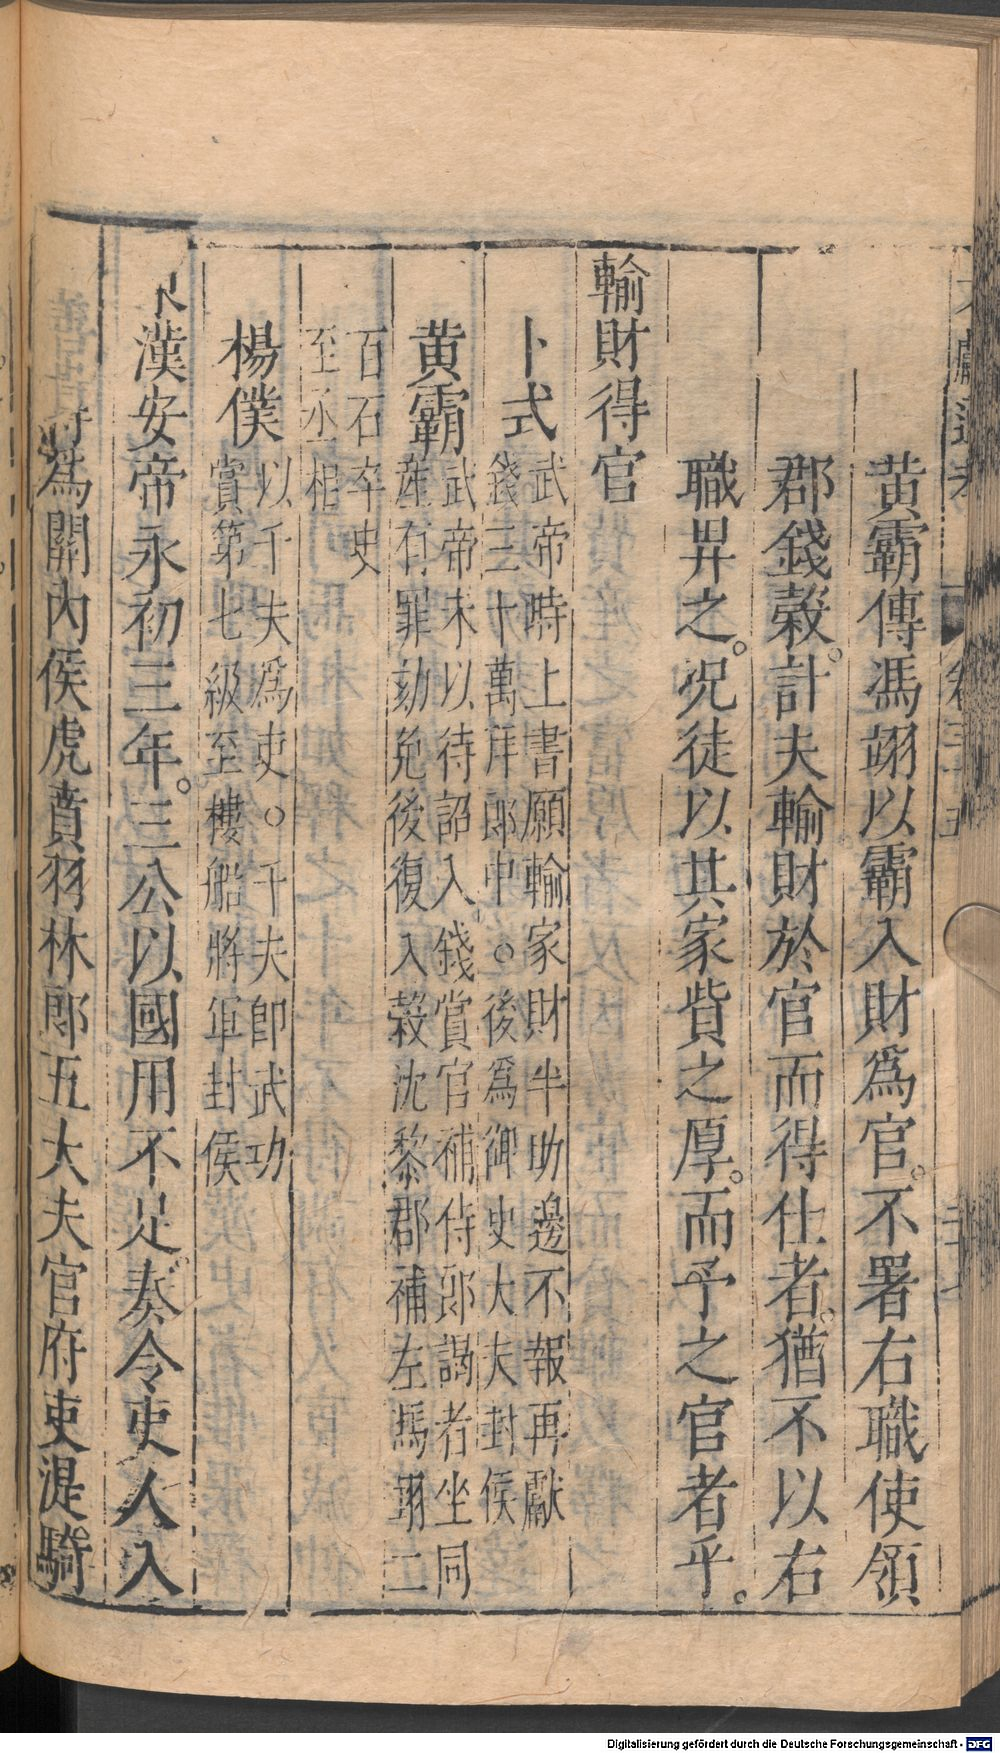 黄霸傳馮翊以霸入財爲官。不署右職使領
郡錢榖。計夫輸財於官而得仕者。猶不以右
職畀之。况徒以其家貲之厚。而予之官者乎。
輸財得官
卜式
武帝時上書願輸家財半助邊不報再獻
錢二十萬拜郎中○後爲御史大夫封侯
黄霸
武帝末以待詔入錢賞官補侍郎謁者坐同
産有罪劾免後復入榖沈黎郡補左馮翊二
百石卒史
至丞相
楊僕
以千夫爲吏○千夫即武功
賞第七級至樓船將軍封侯
漢安帝永初三年。三公以國用不足。奏令吏人入
爲關內侯虎賁羽林郎五大夫官府吏緹騎
Digitalisierung gefördert durch die Deutsche Forschungsgemeinschaft - DFG